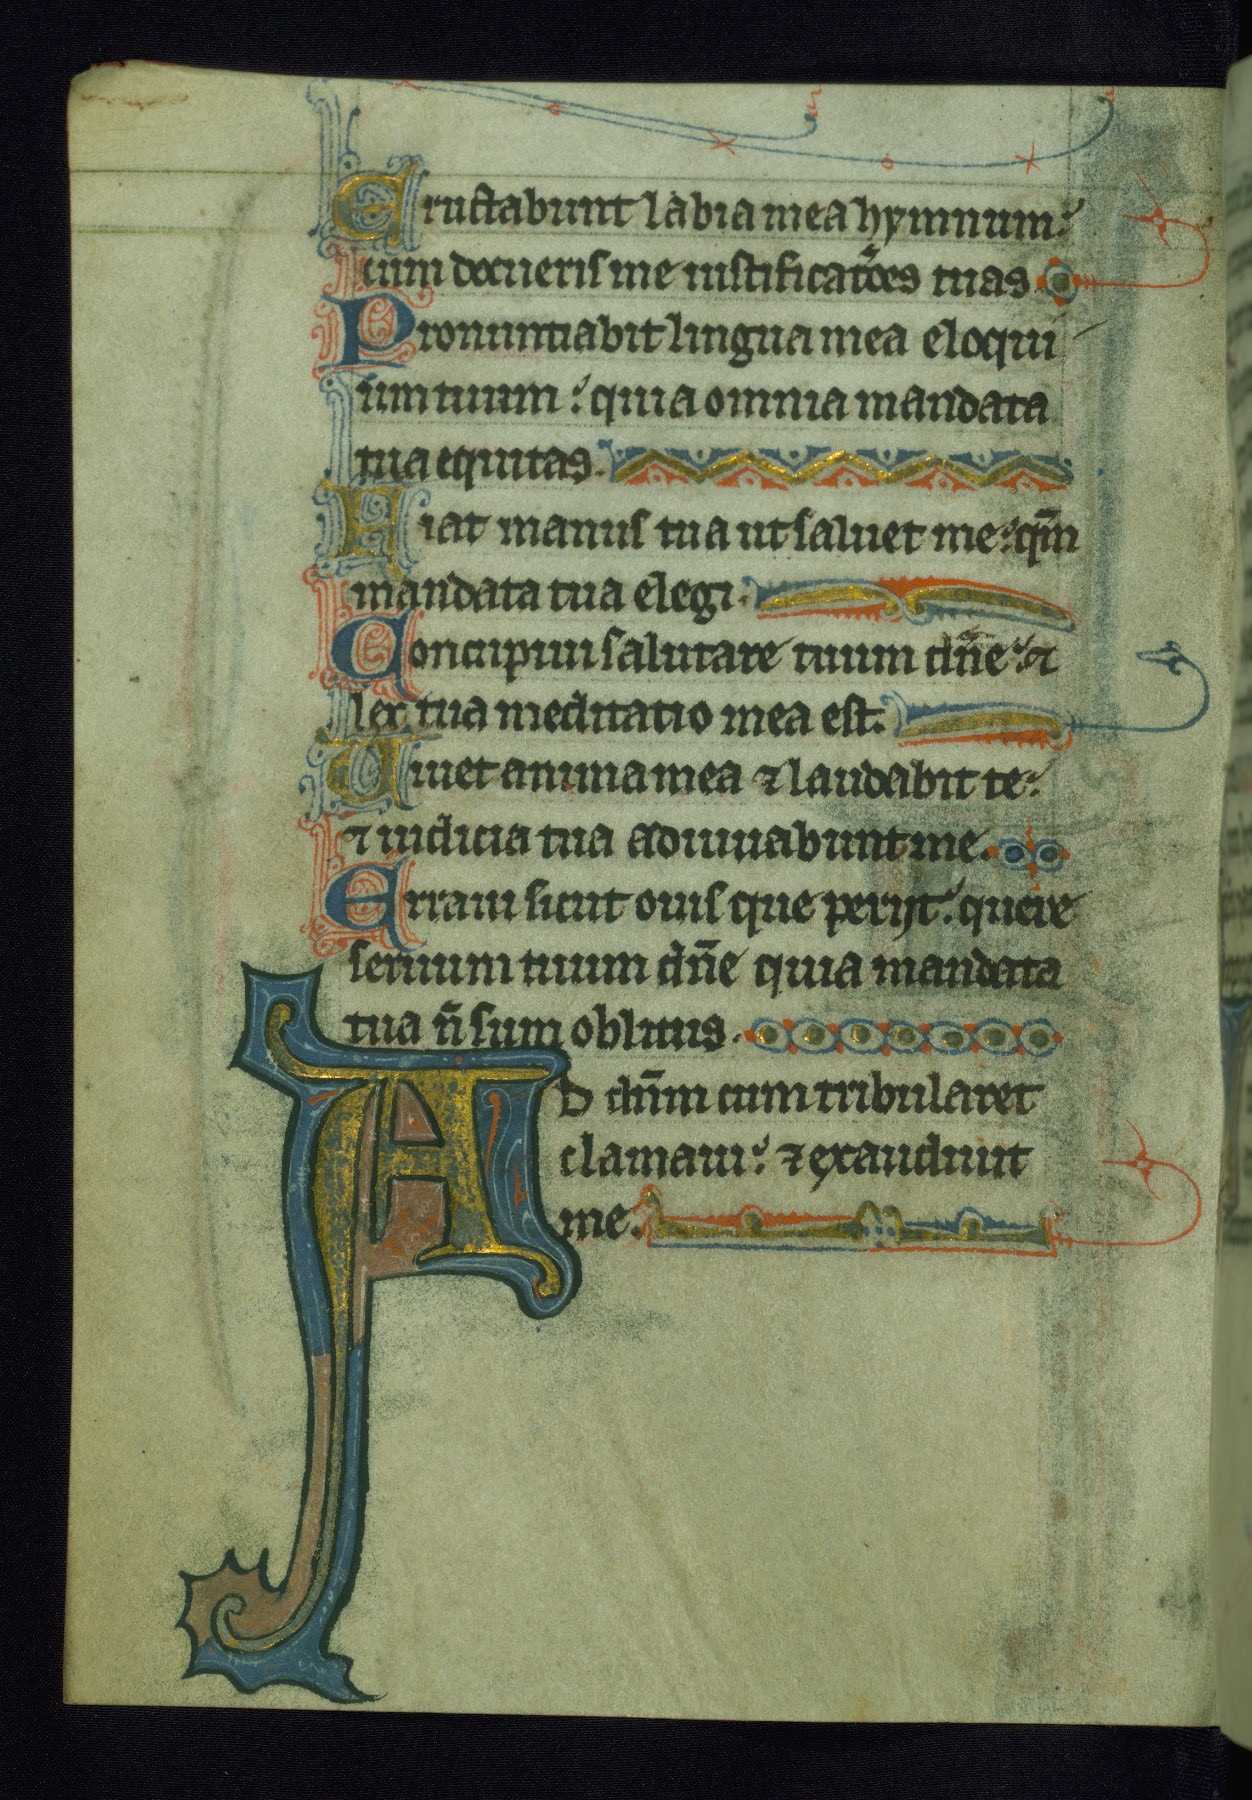 Eructabunt labia mea hymnum:
cum docueris me iustificat̃oes tuas.
Pronuntiabit lingua mea eloqui
um tuum: quia omnia mandata
tua equitas.
Fiat manus tua ut saluet me: qm̃
mandata tua elegi.
Concupiui salutare tuum dñe: ⁊
lex tua meditatio mea est.
Uiuet anima mea ⁊ laudabit te:
⁊ iudicia tua adiuuabunt me.
Erraui sicut ouis que perijt: quere
seruum tuum dñe quia mandata
tua ñ sum oblitus.
AD dñm cum tribularet
clamaui: ⁊ exaudiuit
me.